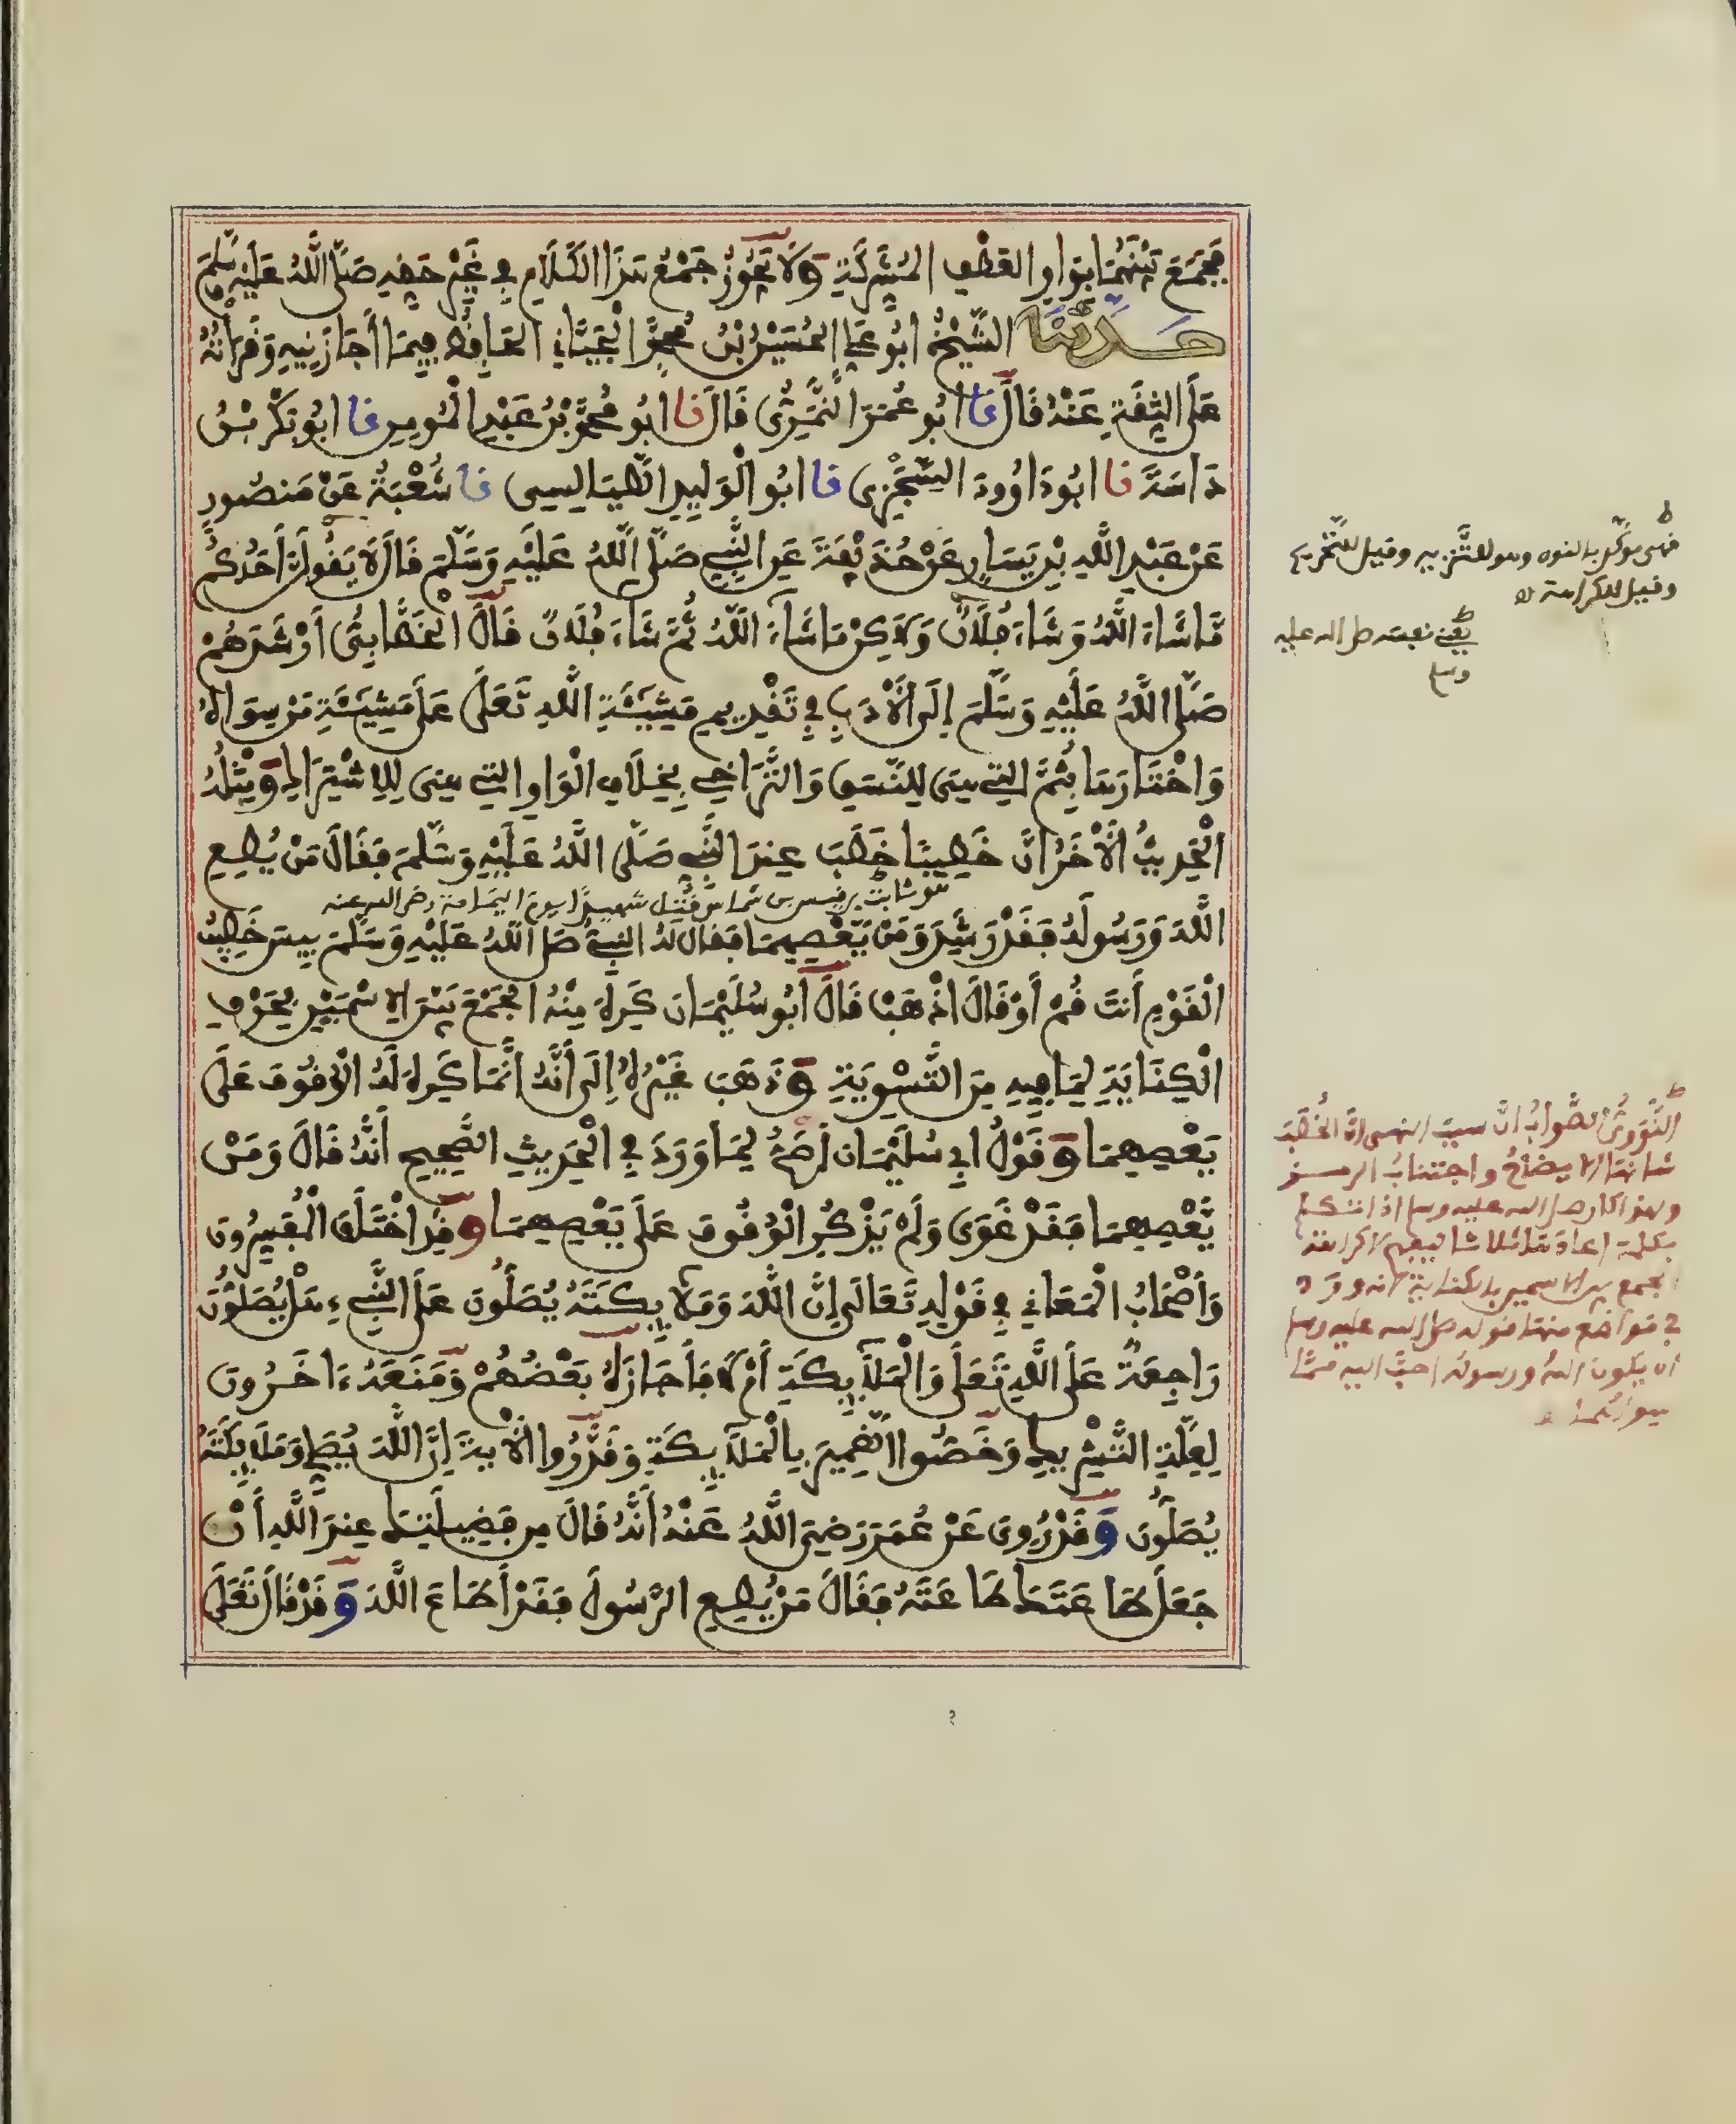 فَجَمَعَ بَيْنَهُمَا بِوَاوِ الْعَطْفِ الْمُشَرِّكَةِ وَلَا يَجُوزُ جَمْعُ هَذَا الْكَلَامِ فِي غَيْرِ حَقِّهِ صَلَّى اللَّهُ عَلَيْهِ وَسَلَّمَ
حَدَّثَنَا الشَّيْخُ ابُو عَلِيٍّ الْحُسَيْنُ بْنُ مُحَمَّدٍ الْجَيَّانِي الْحَافِظُ فِيمَا أَجَازَنِيهِ وَقَرَأْتُهُ
عَلَى الثِّقَةِ عَنْهُ قَالَ نا ابُو عُمَرَ النَّمَرِيُّ قَالَ نا ابُو مُحَمَّدِ بْنُ عَبْدِ الْمُومِنِ نا ابُو بَكْرِ بْنُ
دَاسَةَ نا ابُو دَاوُودَ السِّجْزِي نا ابُو الْوَلِيدِ الطَّيَالِسِي نا شُعْبَةُ عَنْ مَنصُورٍ
عَنْ عَبْدِ اللَّهِ بْنِ يَسَارٍ عَنْ حُذَيْفَةَ عَنِ النَّبِيِّ صَلَّى اللَّهُ عَلَيْهِ وَسَلَّمَ قَالَ لَا يَقُولَنَّ أَحَدُكُمْ
مَا شَاءَ اللَّهُ وَشَاءَ فُلَانٌ وَلَكِنْ مَا شَاءَ اللَّهُ ثُمَّ شَاءَ فُلَانٌ قَالَ الْخَطَّابِيُّ أَرْشَدَهُمْ
صَلَّى اللَّهُ عَلَيْهِ وَسَلَّمَ إِلَى الْأَدَبِ فِي تَقْدِيمِ مَشِيئَةِ اللَّهِ تَعَلَى عَلَى مَشِيئَةِ مَنْ سِوَاهُ
وَاخْتَارَهَا بِثُمَّ الَّتِي هِيَ لِلنَّسَقِ وَالتَّرَاخِي بِخِلَافِ الْوَاوِ الَّتِي هِيَ لِلِاشْتِرَاكِ وَمِثْلُهُ
الْحَدِيثُ الْأَخَرُ انَّ خَطِيبًا خَطَبَ عِندَ النَّبِيِّ صَلَّى اللَّهُ عَلَيْهِ وَسَلَّمَ فَقَالَ مَنْ يُطِعِ
هو ثابت بن قيس بن شماس قتل شهيدا يوم اليمامة رضي الله عنه
اللَّهَ وَرَسُولَهُ فَقَدْ رَشَدَ وَمَنْ يَعْصِهِمَا فَقَالَ لَهُ النَّبِيُّ صَلَّى اللَّهُ عَلَيْهِ وَسَلَّمَ بِيسَ خَطِيبُ
الْقَوْمِ أَنتَ قُمْ أَوْ قَالَ اذْهَبْ قَالَ ابُو سُلَيْمَانَ كَرِهَ مِنْهُ الْجَمْعَ بَيْنَ الِاسْمَيْنِ بِحَرْفِ
الْكِنَايَةِ لِمَا فِيهِ مِنَ التَّسْوِيَةِ وَذَهَبَ غَيْرُهُ إِلَى أَنَّهُ إِنَّمَا كَرِهَ لَهُ الْوُقُوفَ عَلَى
يَعْصِهِمَا وَقَوْلُ ابِي سُلَيْمَانَ أَصَحُّ لِمَا وَرَدَ فِي الْحَدِيثِ الصَّحِيحِ أَنَّهُ قَالَ وَمَنْ
يَعْصِهِمَا فَقَدْ غَوَى وَلَمْ يَذْكُرِ الْوُقُوفَ عَلَى يَعْصِهِمَا وَقَدِ اخْتَلَفَ الْمُفَسِّرُونَ
وَأَصْحَابُ الْمَعَانِي فِي قَوْلِهِ تَعَالَى إِنَّ اللَّهَ وَمَلَائِكَتَهُ يُصَلُّونَ عَلَى النَّبِيِّ هَلْ يُصَلُّونَ
رَاجِعَةٌ عَلَى اللَّهِ تَعَلَى وَالْمَلَائِكَةِ أَمْ لَا فَأَجَازَهُ بَعْضُهُمْ وَمَنَعَهُ ءَاخَرُونَ
لِعِلَّةِ التَّشْرِيكِ وَخَصُّوا الضَّمِيرَ بِالْمَلَائِكَةِ وَقَدَّرُوا الْأَيَةَ إِنَّ اللَّهَ يُصَلِّي وَمَلَائِكَتُهُ
يُصَلُّونَ وَقَدْ رُوِيَ عَنْ عُمَرَ رَضِيَ اللَّهُ عَنْهُ أَنَّهُ قَالَ مِن فَضِيلَتِكَ عِندَ اللَّهِ أَنْ
جَعَلَ طَاعَتَكَ طَاعَتَهُ فَقَالَ مَنْ يُطِعِ الرَّسُولَ فَقَدْ أَطَاعَ اللَّهَ وَقَدْ قَالَ تَعَلَى
نهي موكد بالنون وهو للتنزيه وقيل للتحريم
وقيل للكراهة
يعني نفسه صلى الله عليه
وسلم
النووي الصواب ان سبب النهي ان الخطب
شانها الايضاح واجتناب الرمز
ولهذا كان صلى الله عليه وسلم اذا تكلم
بكلمة اعادها ثلاثا ليفهم لا كراهة
الجمع بين الاسمين بالكناية لانه ورد
في مواضع منها قوله صلى الله عليه وسلم
ان يكون الله ورسوله احب اليه مما
سواهما